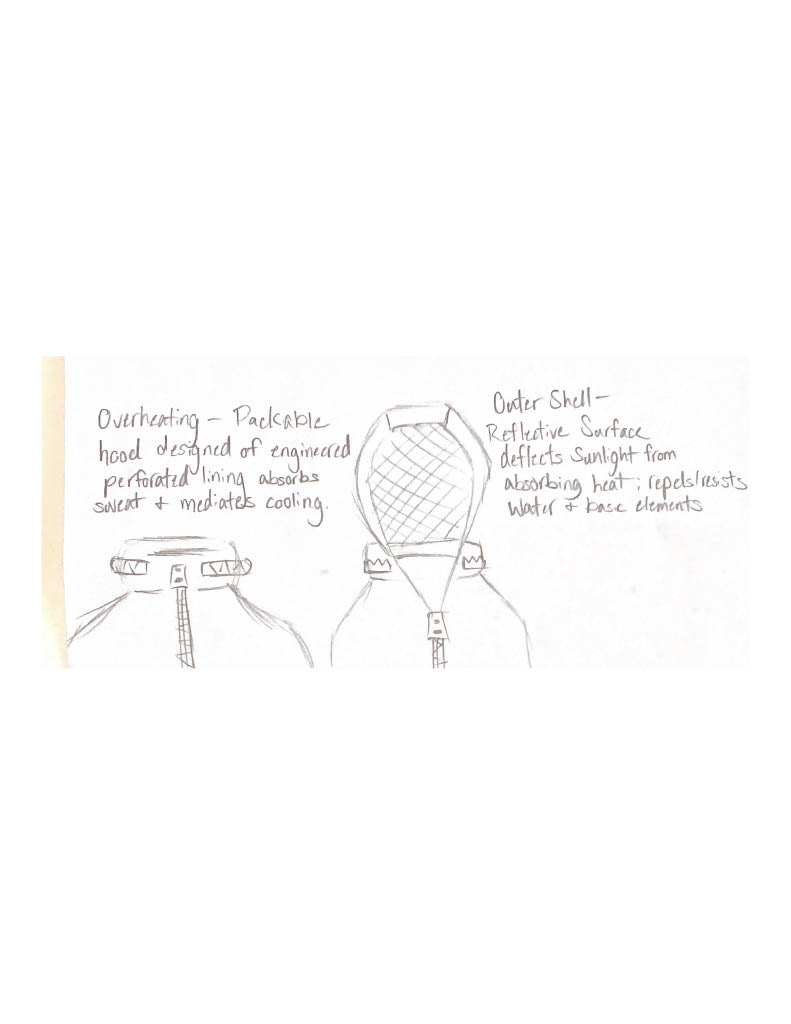 Overheating – Packable
hood designed of engineered
perforated lining absorbs
sweat + mediates cooling.
Outer Shell –
Reflective Surface
deflects Sunlight from
absorbing heat; repels/resists
Water + basic elements